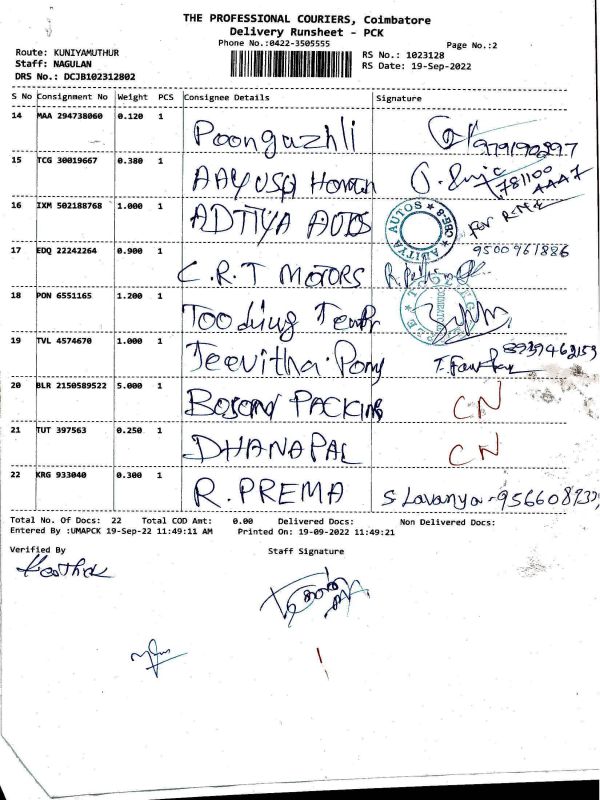 THE PROFESSIONAL COURIERS, Coimbatore
Delivery Runsheet - PCK
Phone No.:0422-3505555
Page No.:2
Route: KUNIYAMUTHUR
Staff: NAGULAN
DRS No.: DCJB102312802
RS No.: 1023128
RS Date: 19-Sep-2022
S No Consignment No Weight PCS Consignee Details Signature
14 MAA 294738060 0.120 1 Poonguzhli
15 TCG 30019667 0.380 1 AAYUSH
16 IXM 502188768 1.000 1 ADITYA AUTOS
ADITYA AUTOS
9500961886
17 EDQ 22242264 0.900 1 C.R.T MOTORS
18 PON 6551165 1.200 1
19 TVL 4574670 1.000 1 Jeevitha Pony 8939462159
20 BLR 2150589522 5.000 1 PACKING CN
21 TUT 397563 0.250 1 DHANAPAL CN
22 KRG 933040 0.300 1 R.PREMA S Lavanya -
Total No. Of Docs: 22 Total COD Amt: 0.00 Delivered Docs: Non Delivered Docs:
Entered By :UMAPCK 19-Sep-22 11:49:11 AM Printed On: 19-09-2022 11:49:21
Verified By Staff Signature